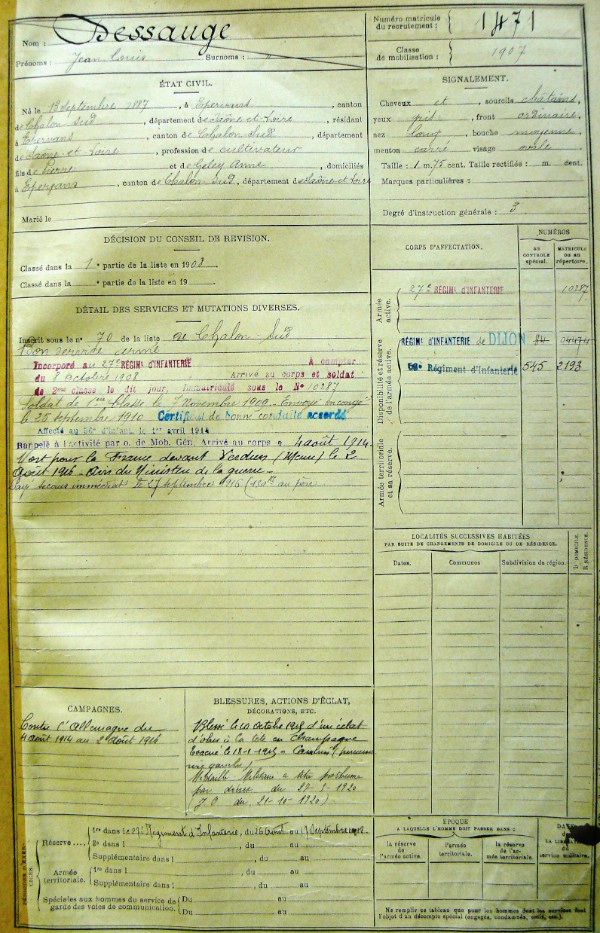 Nom : Dessauge
Prénoms : Jean Louis Surnoms : "
Numéro matricule du recrutement : 1471
Classe de mobilisation : 1907
ÉTAT CIVIL.
Né le 13 septembre 1887, à Epervans, canton
de Chalon Sud, département de Saône-et-Loire, résidant
à Epervans, canton de Chalon Sud, département
de Saône et Loire, profession de cultivateur
fils de Pierre et de Anne, domiciliés
à Epervans, canton de Chalon Sud, département de Saône et Loire
Marié le
SIGNALEMENT.
Cheveux et sourcils châtains,
yeux gris, front ordinaire,
nez long, bouche moyenne,
menton carré visage ovale
Taille : 1 m. 75 cent. Taille rectifiée : m. cent.
Marques particulières :
Degré d'instruction générale : 3
DÉCISION DU CONSEIL DE REVISION.
Classé dans la 1e partie de la liste en 1908
Classé dans la e partie de la liste en 19
DÉTAIL DES SERVICES ET MUTATIONS DIVERSES.
Inscrit sous le n° 70 de la liste de Chalon Sud
Bon
Incorporé au 27e RÉGIMENT D'INFANTERIE À compter
du 8 octobre 1908 Arrivé au corps et soldat
de 2me classe le dit jour, immatriculé sous le No 10287
Soldat de 1re Classe le 7 novembre 1909 - Envoyé en congé
le 25 septembre 1910 Certificat de bonne conduite accordé
Affecté au d'Infant. le 1er avril 1914
Rappelé à l'activité par o. de Mob. Gén. Arrivé au corps le 4 août 1914
Mort pour la France devant Verdun (Meuse) le 2
août 1916 - Avis du Ministère de la guerre -
secours immédiat le 27 septembre 1916 (150f au père
CORPS D'AFFECTATION.
NUMÉROS
AU CONTRÔLE spécial.
MATRICULE OU AU répertoire.
Armée active.
27e RÉGIMENT D'INFANTERIE 10287
Disponibilité et réserve de l'armée active.
RÉGIMt D'INFANTERIE de DIJON
Régiment d'Infanterie 545 2193
Armée territoriale et sa réserve.
LOCALITÉS SUCCESSIVES HABITÉES
PAR SUITE DE CHANGEMENTS DE DOMICILE OU DE RÉSIDENCE.
Dates. Communes Subdivision de région. D domicile. R résidence.
CAMPAGNES.
Contre l'Allemagne du
4 août 1914 au 2 août 1916
BLESSURES, ACTIONS D'ÉCLAT,
DÉCORATIONS, ETC.
Blessé le 10 octobre d'un éclat
d'obus à la tête en Champagne
Evacué le
Médaille Militaire à titre posthume
(J.O. du 1920)
Réserve 1re dans le 27e Régiment d'Infanterie, du 26 août au 17 septembre
2e dans l , du au
Supplémentaire dans l , du au
Armée territoriale. 1re dans l , du au
Supplémentaire dans l , du au
Spéciales aux hommes du service de garde des voies de communication. Du au
Du au
ÉPOQUE
À LAQUELLE L'HOMME DOIT PASSER DANS :
la réserve de l'armée active. l'armée territoriale. la réserve de l'armée territoriale.
service militaire.
Ne remplir ce tableau que pour les hommes dont les services font
l'objet d'un décompte spécial (engagés, condamnés, omis, etc.)